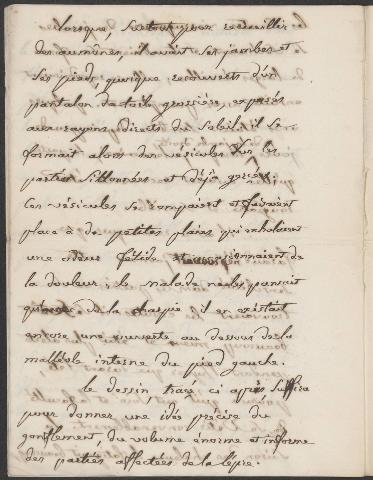 lorsque
des aumônes, il avait ses jambes et
ses pieds, quoique recouverts d'un
pantalon de toile grossière, exposés
aux rayons directs du Soleil, il se
formait alors des vésicules sur les
parties sillonnées et déjà
Ces vésicules se rompaient et faisaient
place à de petites plaies qui exhalaient
une odeur fétide et occasionnaient de
la douleur; le malade ne les pansait
qu'avec de la charpie il en existait
encore une ouverte au dessus de la
malléole interne du pied gauche.
le dessin, tracé ci après suffira
pour donner une idée précise du
gonflement, du volume énorme et informe
des parties affectées de la lèpre.